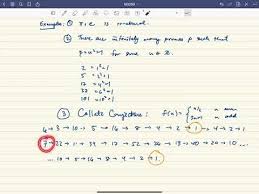 Examples: ① π+e is irrational.
② There are infinitely many primes p such that
p = n²+1 for some n ∈ ℤ.
2 = 1²+1
5 = 2²+1
17 = 4²+1
37 = 6²+1
101 = 10²+1
③ Collatz Conjecture: f(n) = { n/2 n even
3n+1 n odd
→ 3 → 10 → 5 → 16 → 8 → 4 → 2 → 1 → 4 → 2 → 1
7 → 22 → 11 → 34 → 17 → 52 → 26 → 13 → 40 → 20 → 10 ...
... 10 → 5 → 16 → 8 → 4 → 2 → 1